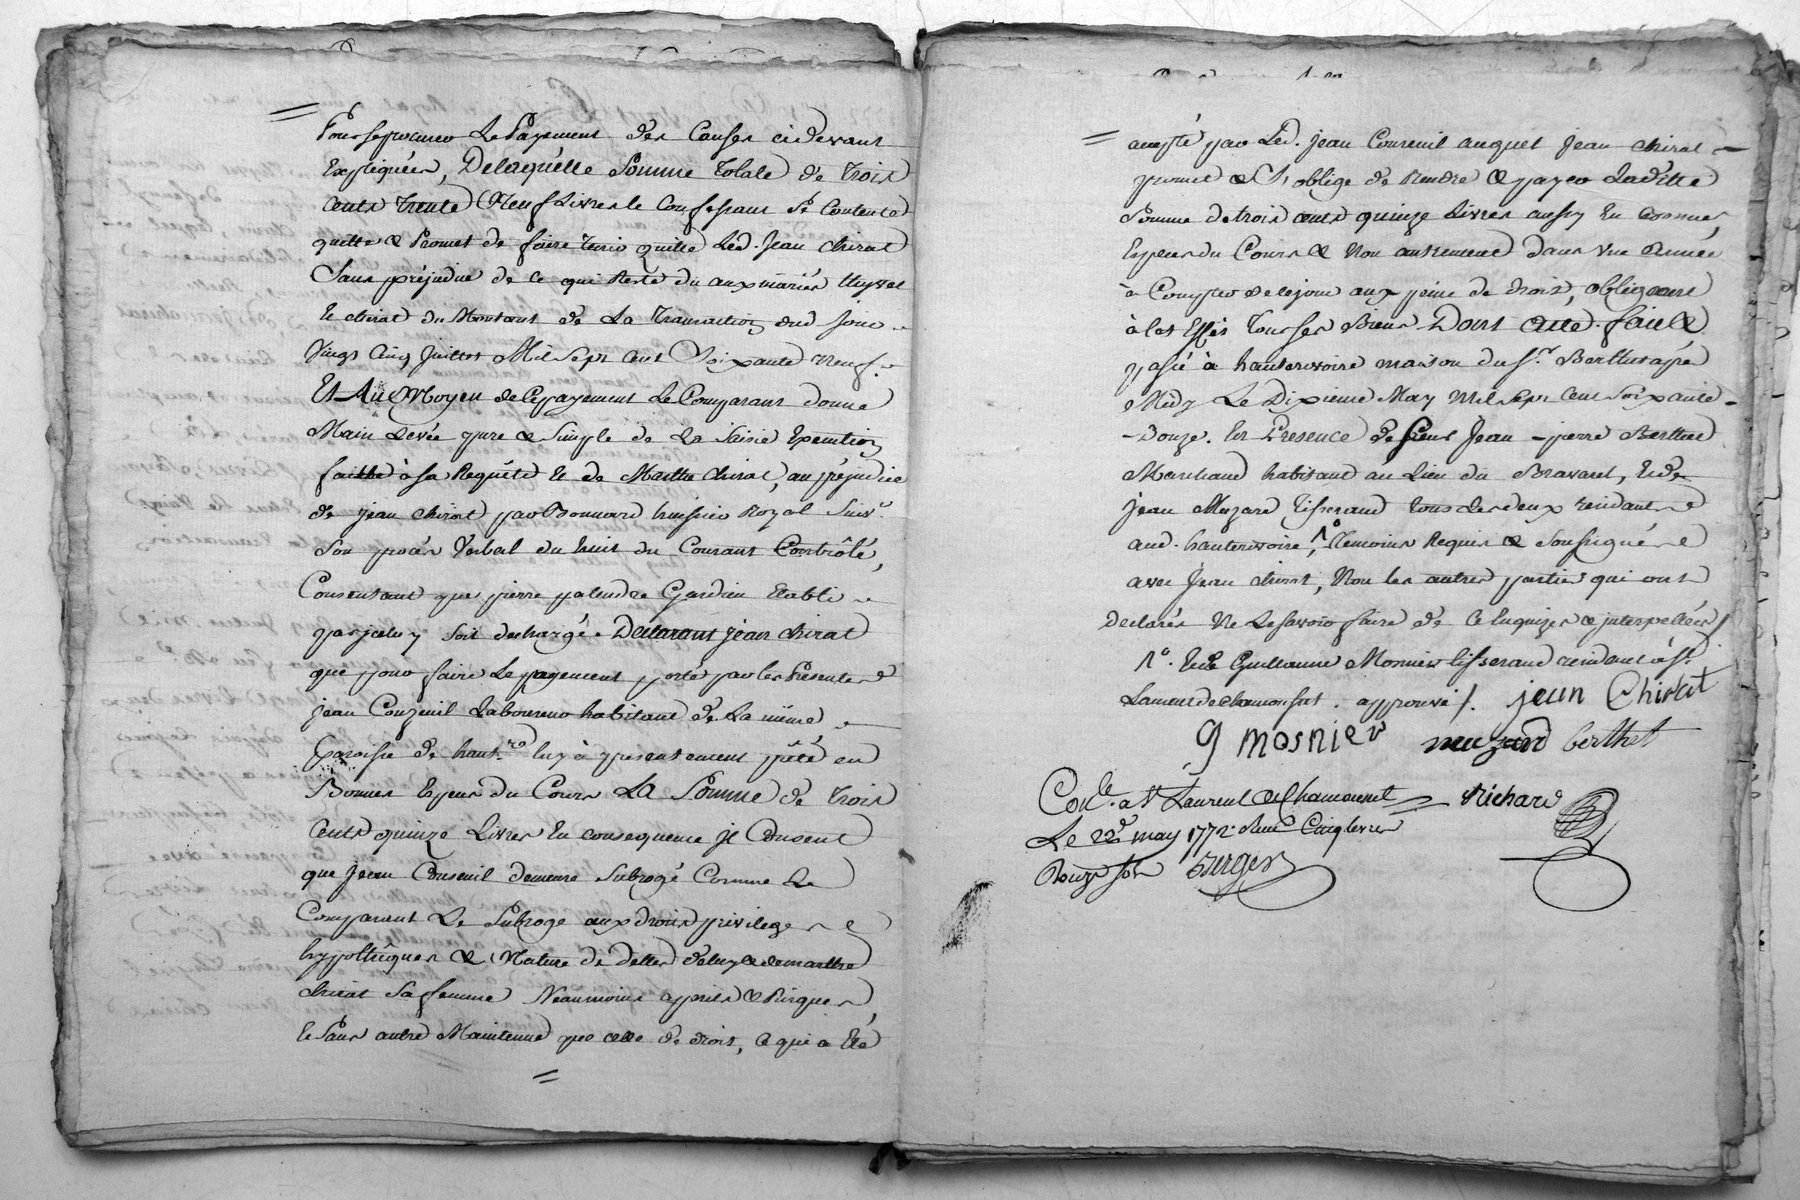 Pour se procurer le Payement des Causes cidevant
Expliquées, Delaquelle Somme totale de trois
cents trente Neuf Livres le Confessant se Contente
quitte & Promet de faire tenir quitte led. Jean chirat
Sans préjudice de ce qui Reste du aux mariés
& chirat du Montant de La transaction dud jour
Vingt Cinq Juillet Mil Sept cent Soixante neuf.
Et Au Moyen de ce payement Le Comparant donne
Main Levée pure & Simple de La Saisie Execution
faitte à sa Requête & de Marthe chirat, au préjudice
de jean chirat par Bonnard huissier Royal Suiv.t
Son procès Verbal du huit du Courant Contrôlé,
Consentant que pierre palendre Gardien Etabli
par jceluy Soit dechargé. Declarant jean chirat
que pour faire Le payement porté par les Presentes
jean Couzeuil Laboureur habitant de La même
Paroisse de haut.re luy à presentement prêté en
Bonnes Especes du Cours La Somme de trois
Cents quinze Livres En consequence jl Consent
que Jean Couseuil demeure Subrogé Comme Le
Comparant Le Subroge aux droits privileges
hypothêques & Nature de dettes de luy & de marthe
chirat Sa femme Neanmoins à perils & Risques,
& Sans autre Maintenue que celle de droit, Ce qui a Eté
=
accepté par Led. jean Coureuil auquel jean chirat
promet & S'oblige de Rendre & payer Laditte
Somme de trois cents quinze Livres aussy En Bonnes
Especes du Cours & Non autrement dans une Année
à Compter de ce jour aux peine de droit, obligeant
à cet Effet tous ses Biens Dont Acte. fait &
passé à hauterivoire maison du S.r Berthet apré
Midy Le Dixieme May Mil Sept Cent Soixante
Douze. En Presence de Sieur Jean pierre Berthet
Marchand habitant au Lieu du Bravard, & de
jean Muzard tisserand tous les deux residants
aud. hauterivoire, 1° temoins Requis & Soussignés
avec jean chirat, Non les autres parties qui ont
declarés Ne Le Savoir faire de ce Enquises & jnterpellées/
1°. & de Guillaume Mosnier tisserand residant à St.
Laurent de chamousset. approuvé/. jean Chirat
g mosnier muzard berthet
Con.le. a St Laurent de Chamousset = Richard
Le 22e may 1772. Reçu Cinq livres
Douze sols Burger